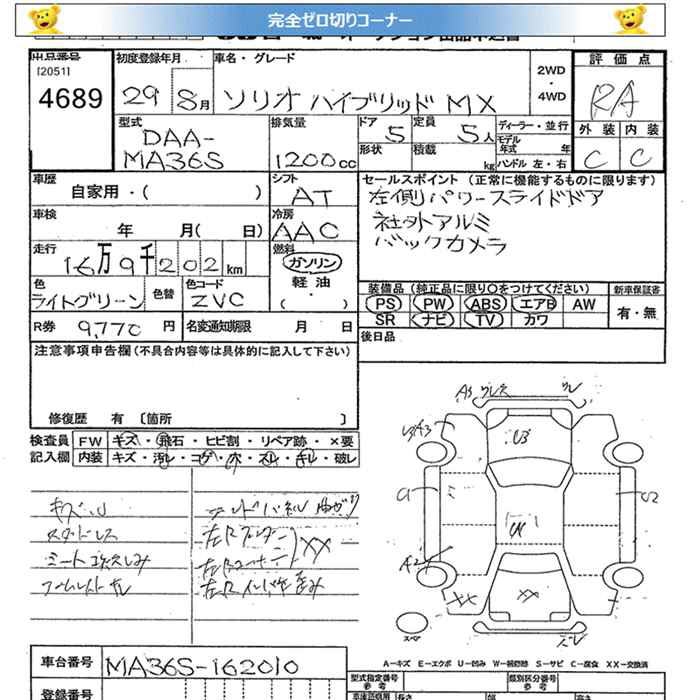 完全ゼロ切りコーナー
出品番号 初度登録年月 車名・グレード 2WD・4WD 評価点
[2051]
4689 29 8月 ソリオ ハイブリッド MX RA
型式 排気量 ドア 定員 ディーラー・並行 外装 内装
DAA-MA36S 1200cc 5 5人 モデル年式 年 C C
形状 積載 kg ハンドル 左・右
車歴 シフト セールスポイント (正常に機能するものに限ります)
自家用・( ) AT 左側パワースライドドア
車検 冷房 社外アルミ
年 月( 日) AAC バックカメラ
走行 燃料
16万9千202km ガソリン・軽油・( )
色 色替 色コード 装備品 (純正品に限り〇をつけてください) 新車保証書
ライトグリーン ZVC PS PW ABS エアB AW 有・無
R券 9,770円 名変通知期限 月 日 SR ナビ TV カワ
注意事項申告欄(不具合内容等は具体的に記入して下さい) 後日品
修復歴 有 〔箇所 〕
検査員 FW キズ・飛石・ヒビ割・リペア跡・×要
記入欄 内装 キズ・汚レ・コゲ・穴・スレ・キレ・破レ
A3
U3
A2
XX
XX
XX
スペア
A-キズ E-エクボ U-凹み W-補修跡 S-サビ C-腐食 XX-交換済
車台番号 MA36S-162010 型式指定番号 参考 類別区分番号 参考
登録番号 長さ 幅 高さ